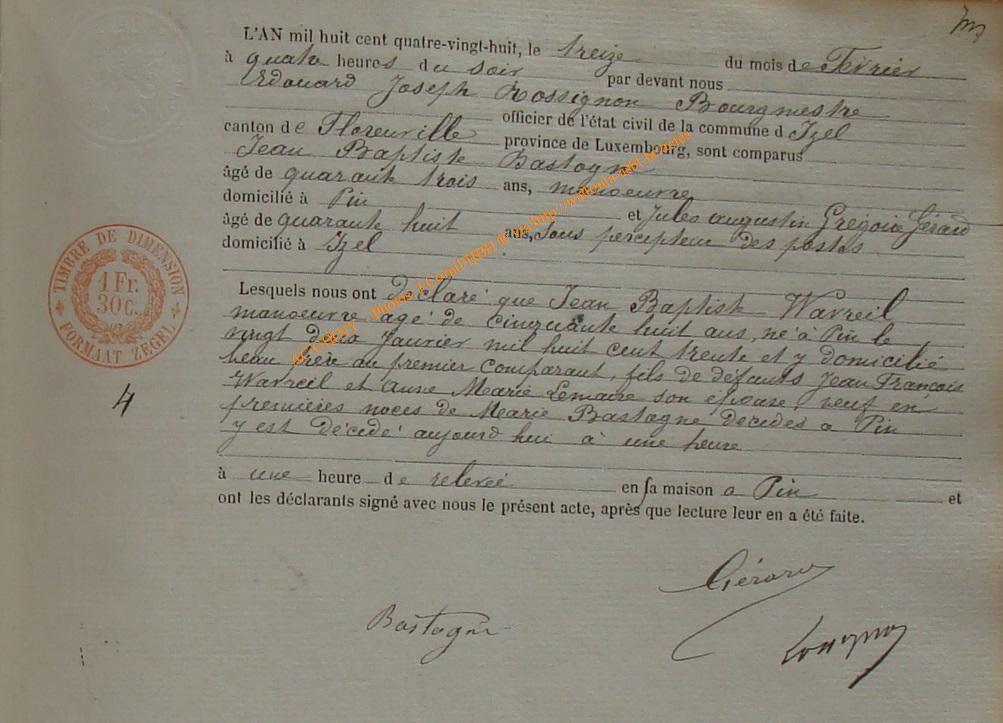 L'AN mil huit cent quatre-vingt-huit, le treize du mois de Février
à quatre heures du soir par devant nous
Edouard Joseph Rossignon Bourgmestre
officier de l'état civil de la commune d Izel
canton de Florenville province de Luxembourg, sont comparus
Jean Baptiste Bastogne
âgé de quarante trois ans, manoeuvre
domicilié à Pin et Jules Augustin Grégoire Gérard
âgé de quarante huit ans, Sous percepteur des postes
domicilié à Izel
Lesquels nous ont déclaré que Jean Baptiste Warreil
manoeuvre agé de cinquante huit ans, né à Pin le
vingt deux Janvier mil huit cent trente et y domicilié
beau frère au premier comparant, fils de défunts Jean François
Warreil et Anne Marie Lemaire son épouse, veuf en
premières noces de Marie Bastogne décedés a Pin
y est décédé aujourd'hui à une heure
à une heure de relevée en sa maison a Pin et
ont les déclarants signé avec nous le présent acte, après que lecture leur en a été faite.
TIMBRE DE DIMENSION
1 Fr.
30 C.
FORMAAT ZEGEL
4
Gérard
Bastogne